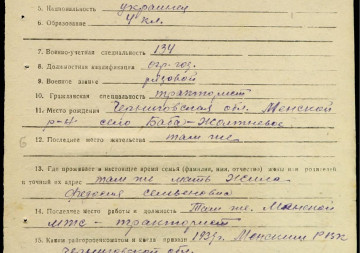 5. Национальность украинец
6. Образование 4 кл.
7. Военно-учетная специальность 134
8. Должностная квалификация стр-
9. Военное звание рядовой
10. Гражданская специальность тракторист
11. Место рождения Черниговская обл. Менской
р-н село Баба-
12. Последнее место жительства там же.
13. Где проживает в настоящее время семья (фамилия, имя, отчество) жены или родителей
и точной их адрес там же мать
Федосия семеновна
14. Последнее место работы и должность Там же. Менской
МТС - тракторист
15. Каким райвоенкоматом и когда призван Менским РВК
Черниговской обл.